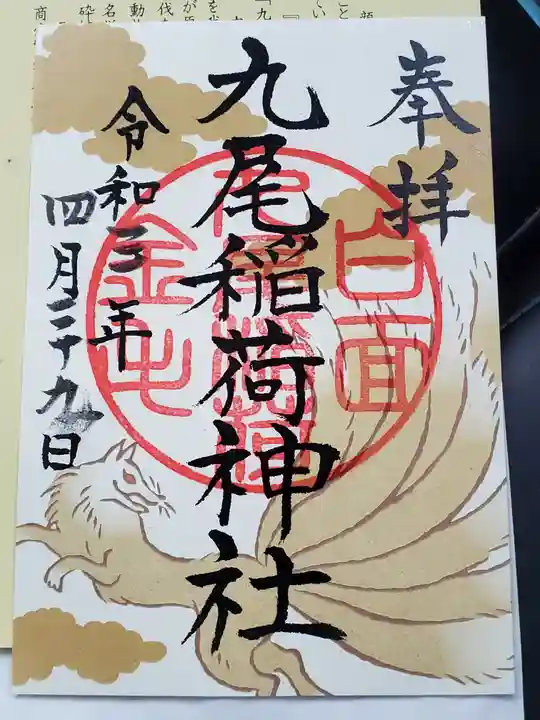 奉拝
九尾稲荷神社
令和三年
四月二十九日
白面
金毛